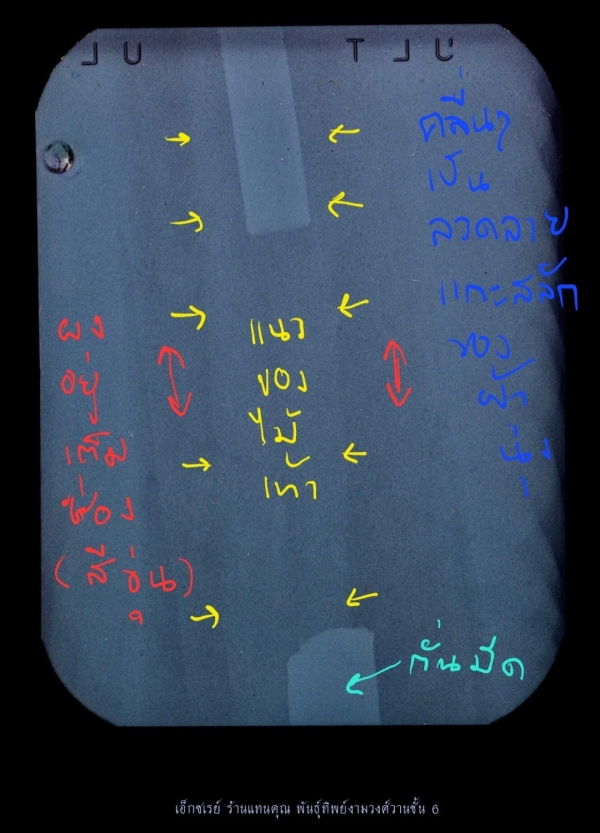 แนว
ของ
ไม้
เท้า
คลื่นๆ
เป็น
ลวดลาย
แกะสลัก
ของ
ผ้า
นุ่ง
ผง
อยู่
เต็ม
ช่อง
(สีขุ่น)
กั่นมีด
เอ็กซเรย์ ร้านแทนคุณ พันธุ์ทิพย์งามวงศ์วานชั้น 6